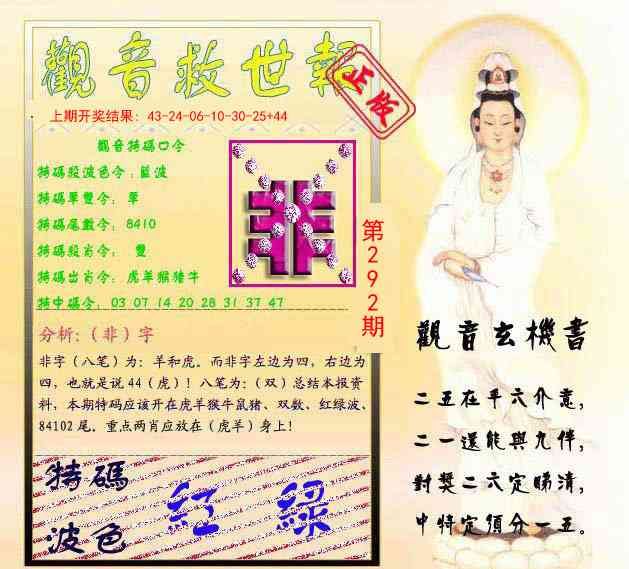 觀音救世報
正版
上期开奖结果：43-24-06-10-30-25+44
觀音特碼口令
特碼段波色令：藍波
特碼單雙令：單
特碼尾數令：8410
特碼段肖令：雙
特碼出肖令：虎羊猴豬牛
特中碼令：03 07 14 20 28 31 37 47
非
第292期
分析：（非）字
非字（八笔）为：羊和虎。而非字左边为四，右边为
四，也就是说44（虎）！八笔为：（双）总结本报资
料，本期特码应该开在虎羊猴牛鼠猪、双数、红绿波、
84102尾。重点两肖应放在（虎羊）身上！
特碼
波色
紅 綠
觀音玄機書
二五在手六介意，
二一還能與九伴，
對獎二六定睇清，
中特定領分一五。